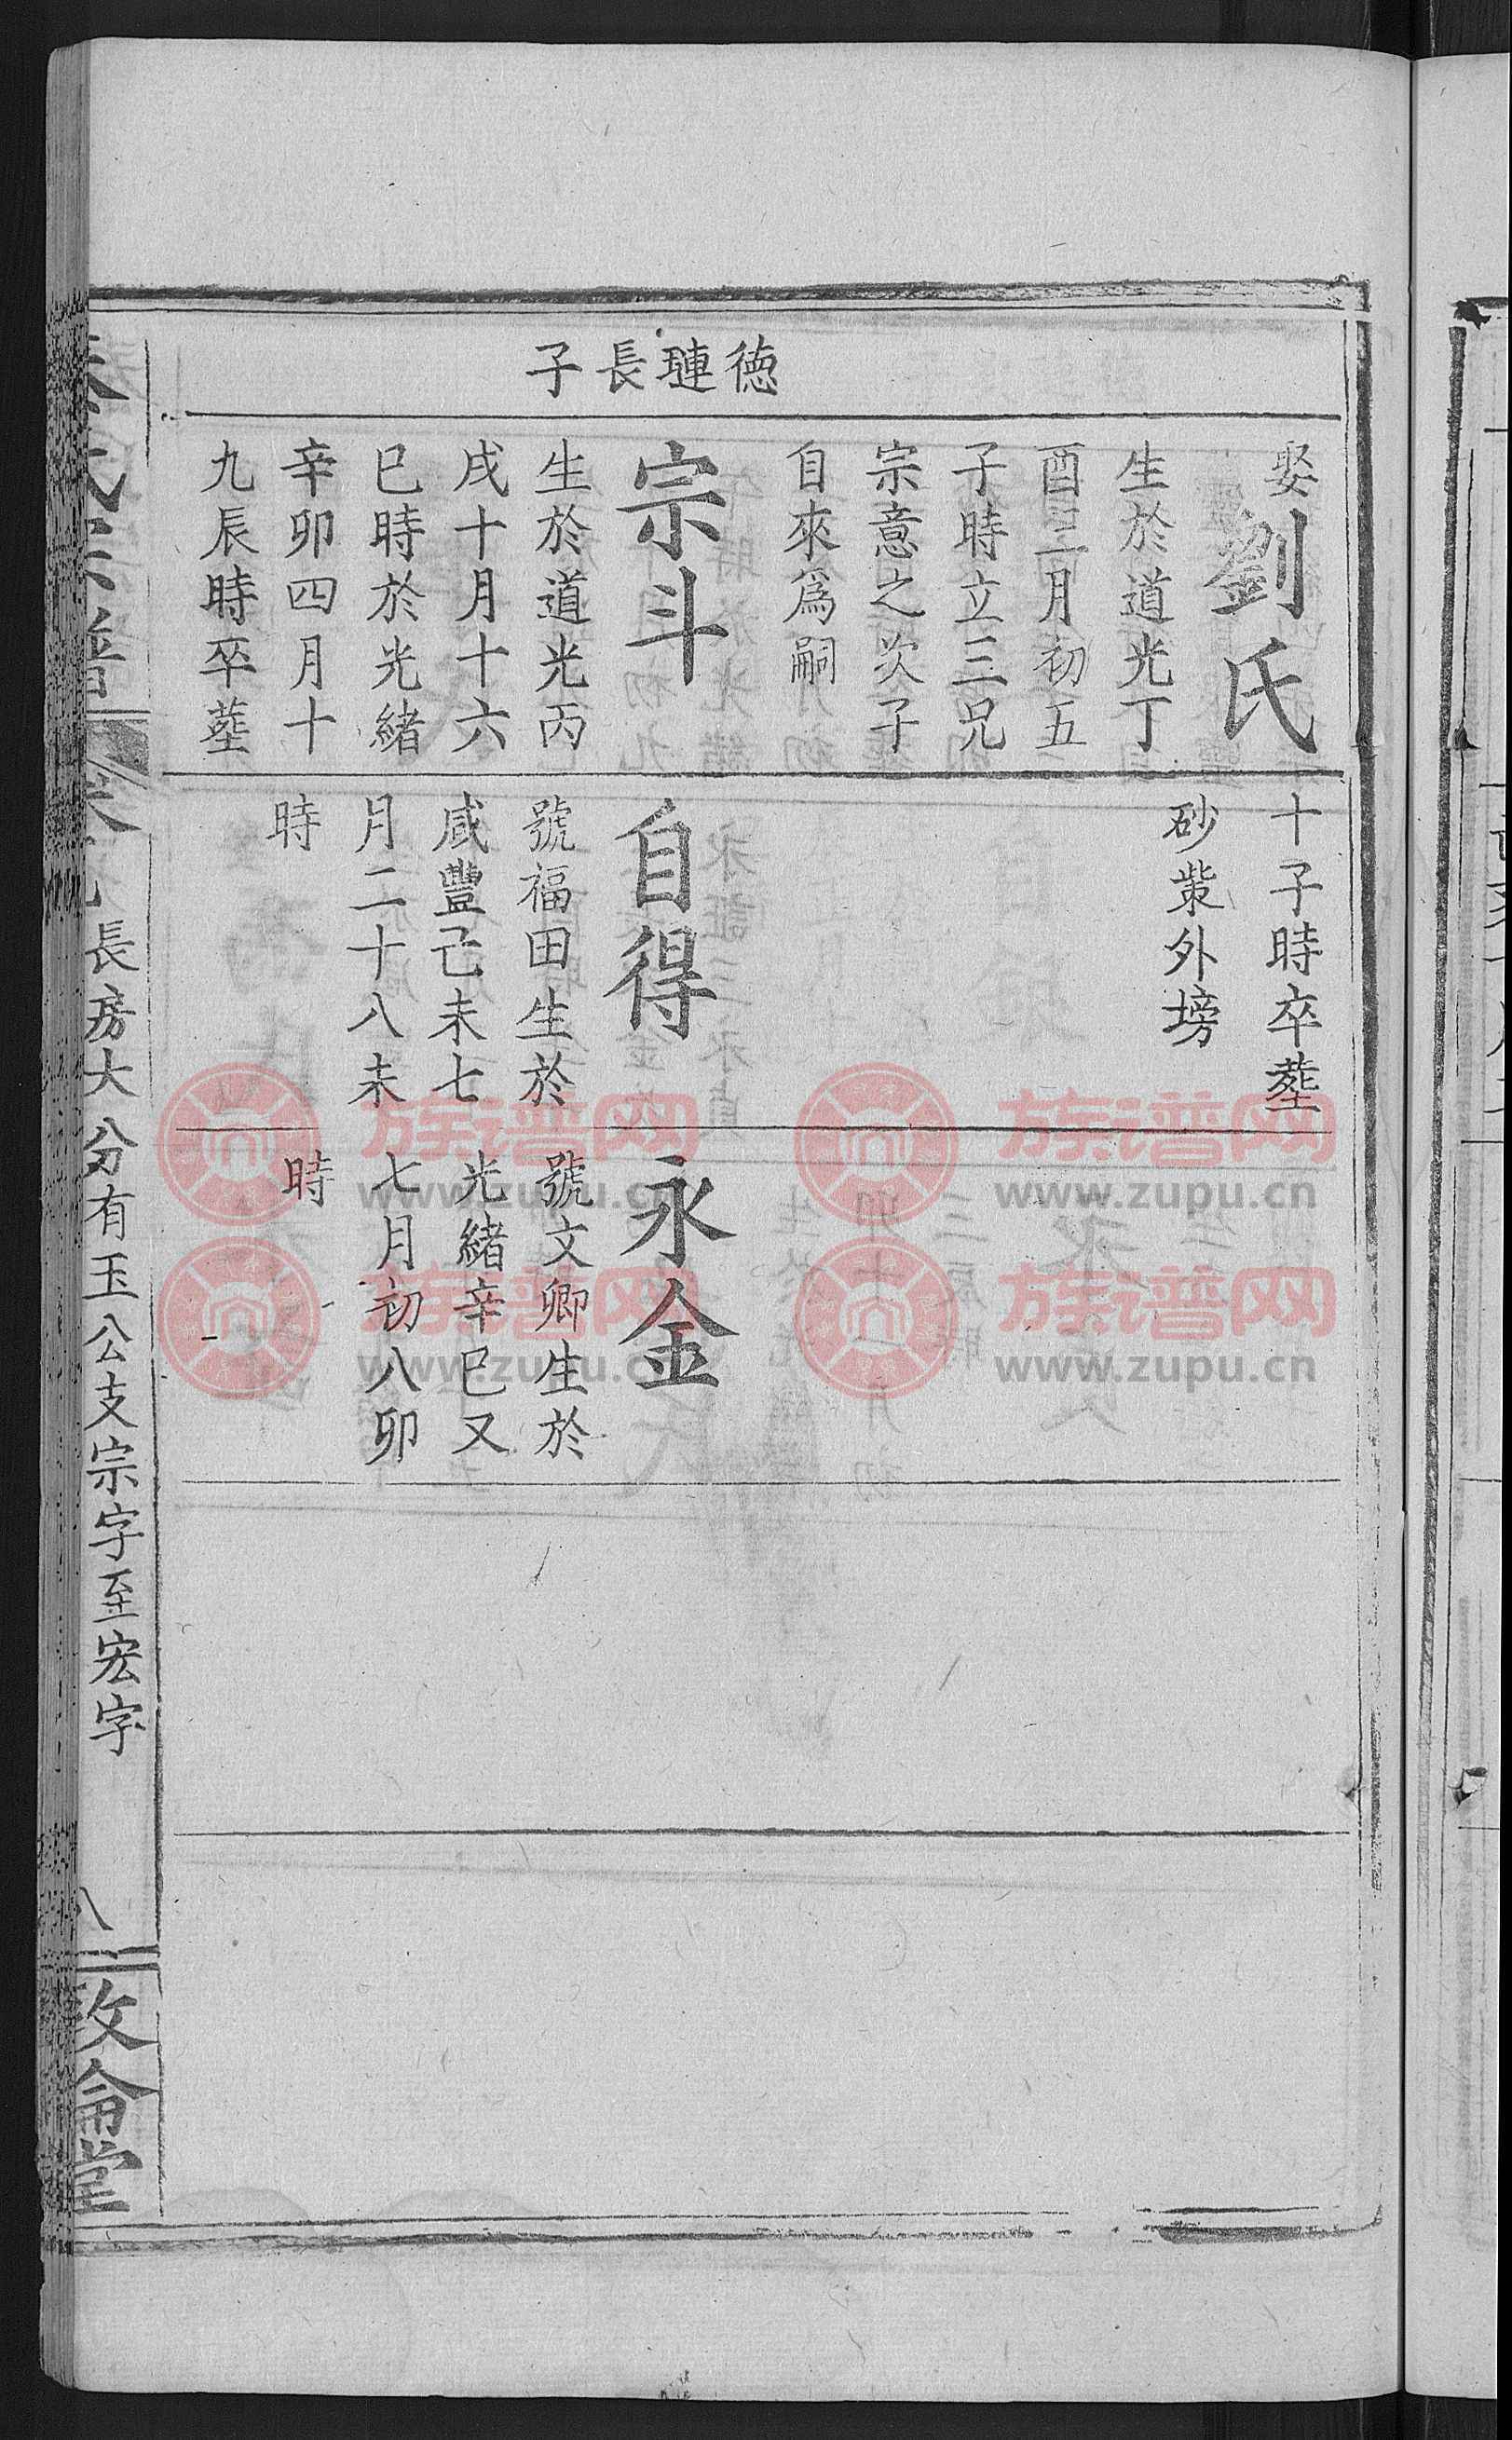 德璉長子
娶劉氏
生於道光丁
酉三月初五
子時立三兄
宗意之次子
自來爲嗣
宗斗
生於道光丙
戌十月十六
巳時於光緒
辛卯四月十
九辰時卒塟
十子時卒塟
砂柴外塝
自得
號福田生於
咸豐己未七
月二十八未
時
永金
號文卿生於
光緒辛巳又
七月初八卯
時
氏宗譜
卷
長房大分有玉公支宗字至宏字
八
敦倫堂
族谱网
www.zupu.cn
族谱网
www.zupu.cn
族谱网
www.zupu.cn
族谱网
www.zupu.cn